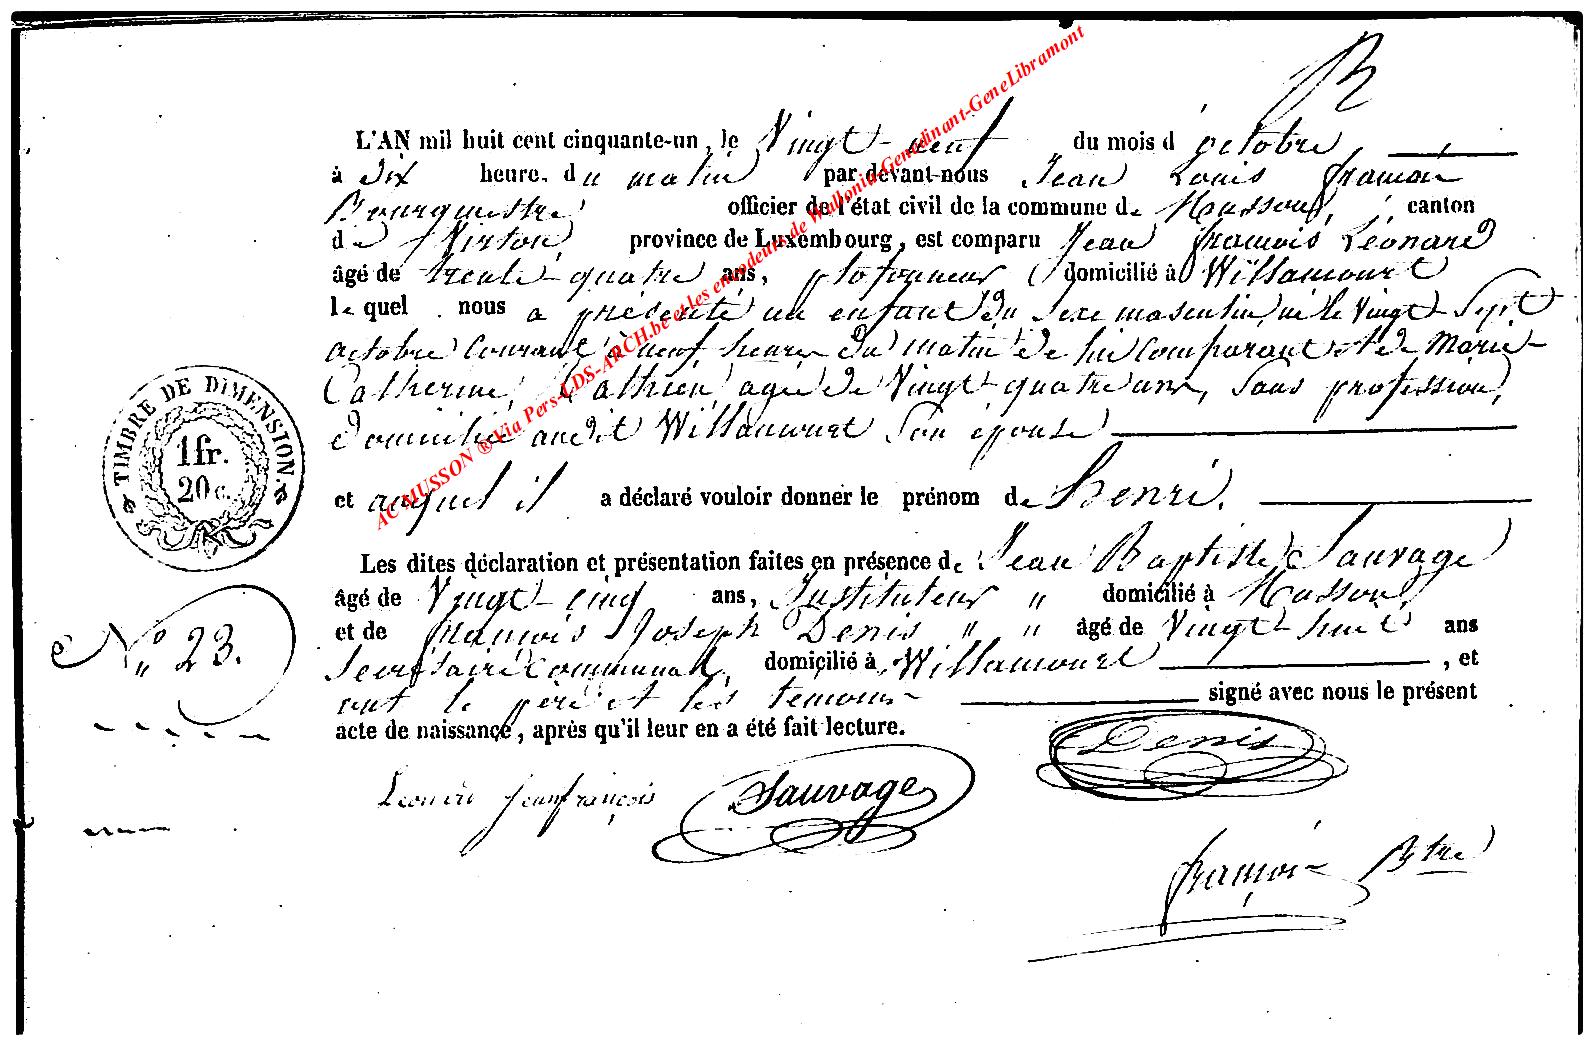 L'AN mil huit cent cinquante-un, le Vingt-neuf du mois d'octobre
à Dix heure. du matin par devant-nous Jean Louis françois
Bourgmestre officier de l'état civil de la commune de Musson, canton
de Virton, province de Luxembourg, est comparu Jean françois Léonard
âgé de trente-quatre ans, plafonneur domicilié à Willancourt
le quel nous a présenté un enfant du sexe masculin, né le Vingt-Sept
octobre courant à neuf heures du matin de lui comparant et de Marie-
Catherine, Mathieu, agée de Vingt-quatre ans, Sans profession,
domiciliée audit Willancourt Son épouse
et auquel il a déclaré vouloir donner le prénom de Henri.
Les dites déclaration et présentation faites en présence de Jean Baptiste Sauvage
âgé de Vingt-cinq ans, Instituteur " domicilié à Musson,
et de françois Joseph Denis " " âgé de Vingt-huit ans
Secrétaire Communal, domicilié à Willancourt, et
ont le père et les témoins signé avec nous le présent
acte de naissance, après qu'il leur en a été fait lecture.
TIMBRE DE DIMENSION.
1 fr.
20 c.
No 23.
Denis
Léonard Jeanfrançois Sauvage
françois Btre
AC MUSSON ® Via Pers-LDS-ARCH.be et les encodeurs de Wallonia-Genedinant-GeneLibramont